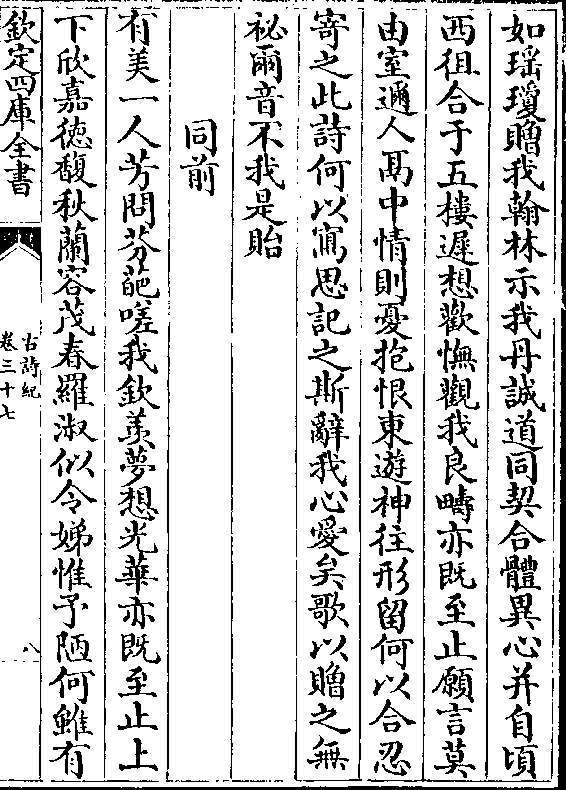 如瑶瓊贈我翰林示我丹誠道同契合體異心并自頃
西徂合于五樓遲想歡憮觀我良疇亦既至止願言莫
由室邇人髙中情則憂抱恨東遊神往形留何以合忍
寄之此詩何以寫思記之斯辭我心愛矣歌以贈之無
祕爾音不我是貽
同前
有美一人芳問芬葩嗟我欽羡夢想光華亦既至止上
下欣嘉徳馥秋蘭容茂春羅淑似令娣惟予陋何雖有
欽定四庫全書
古詩紀
卷三十七
八